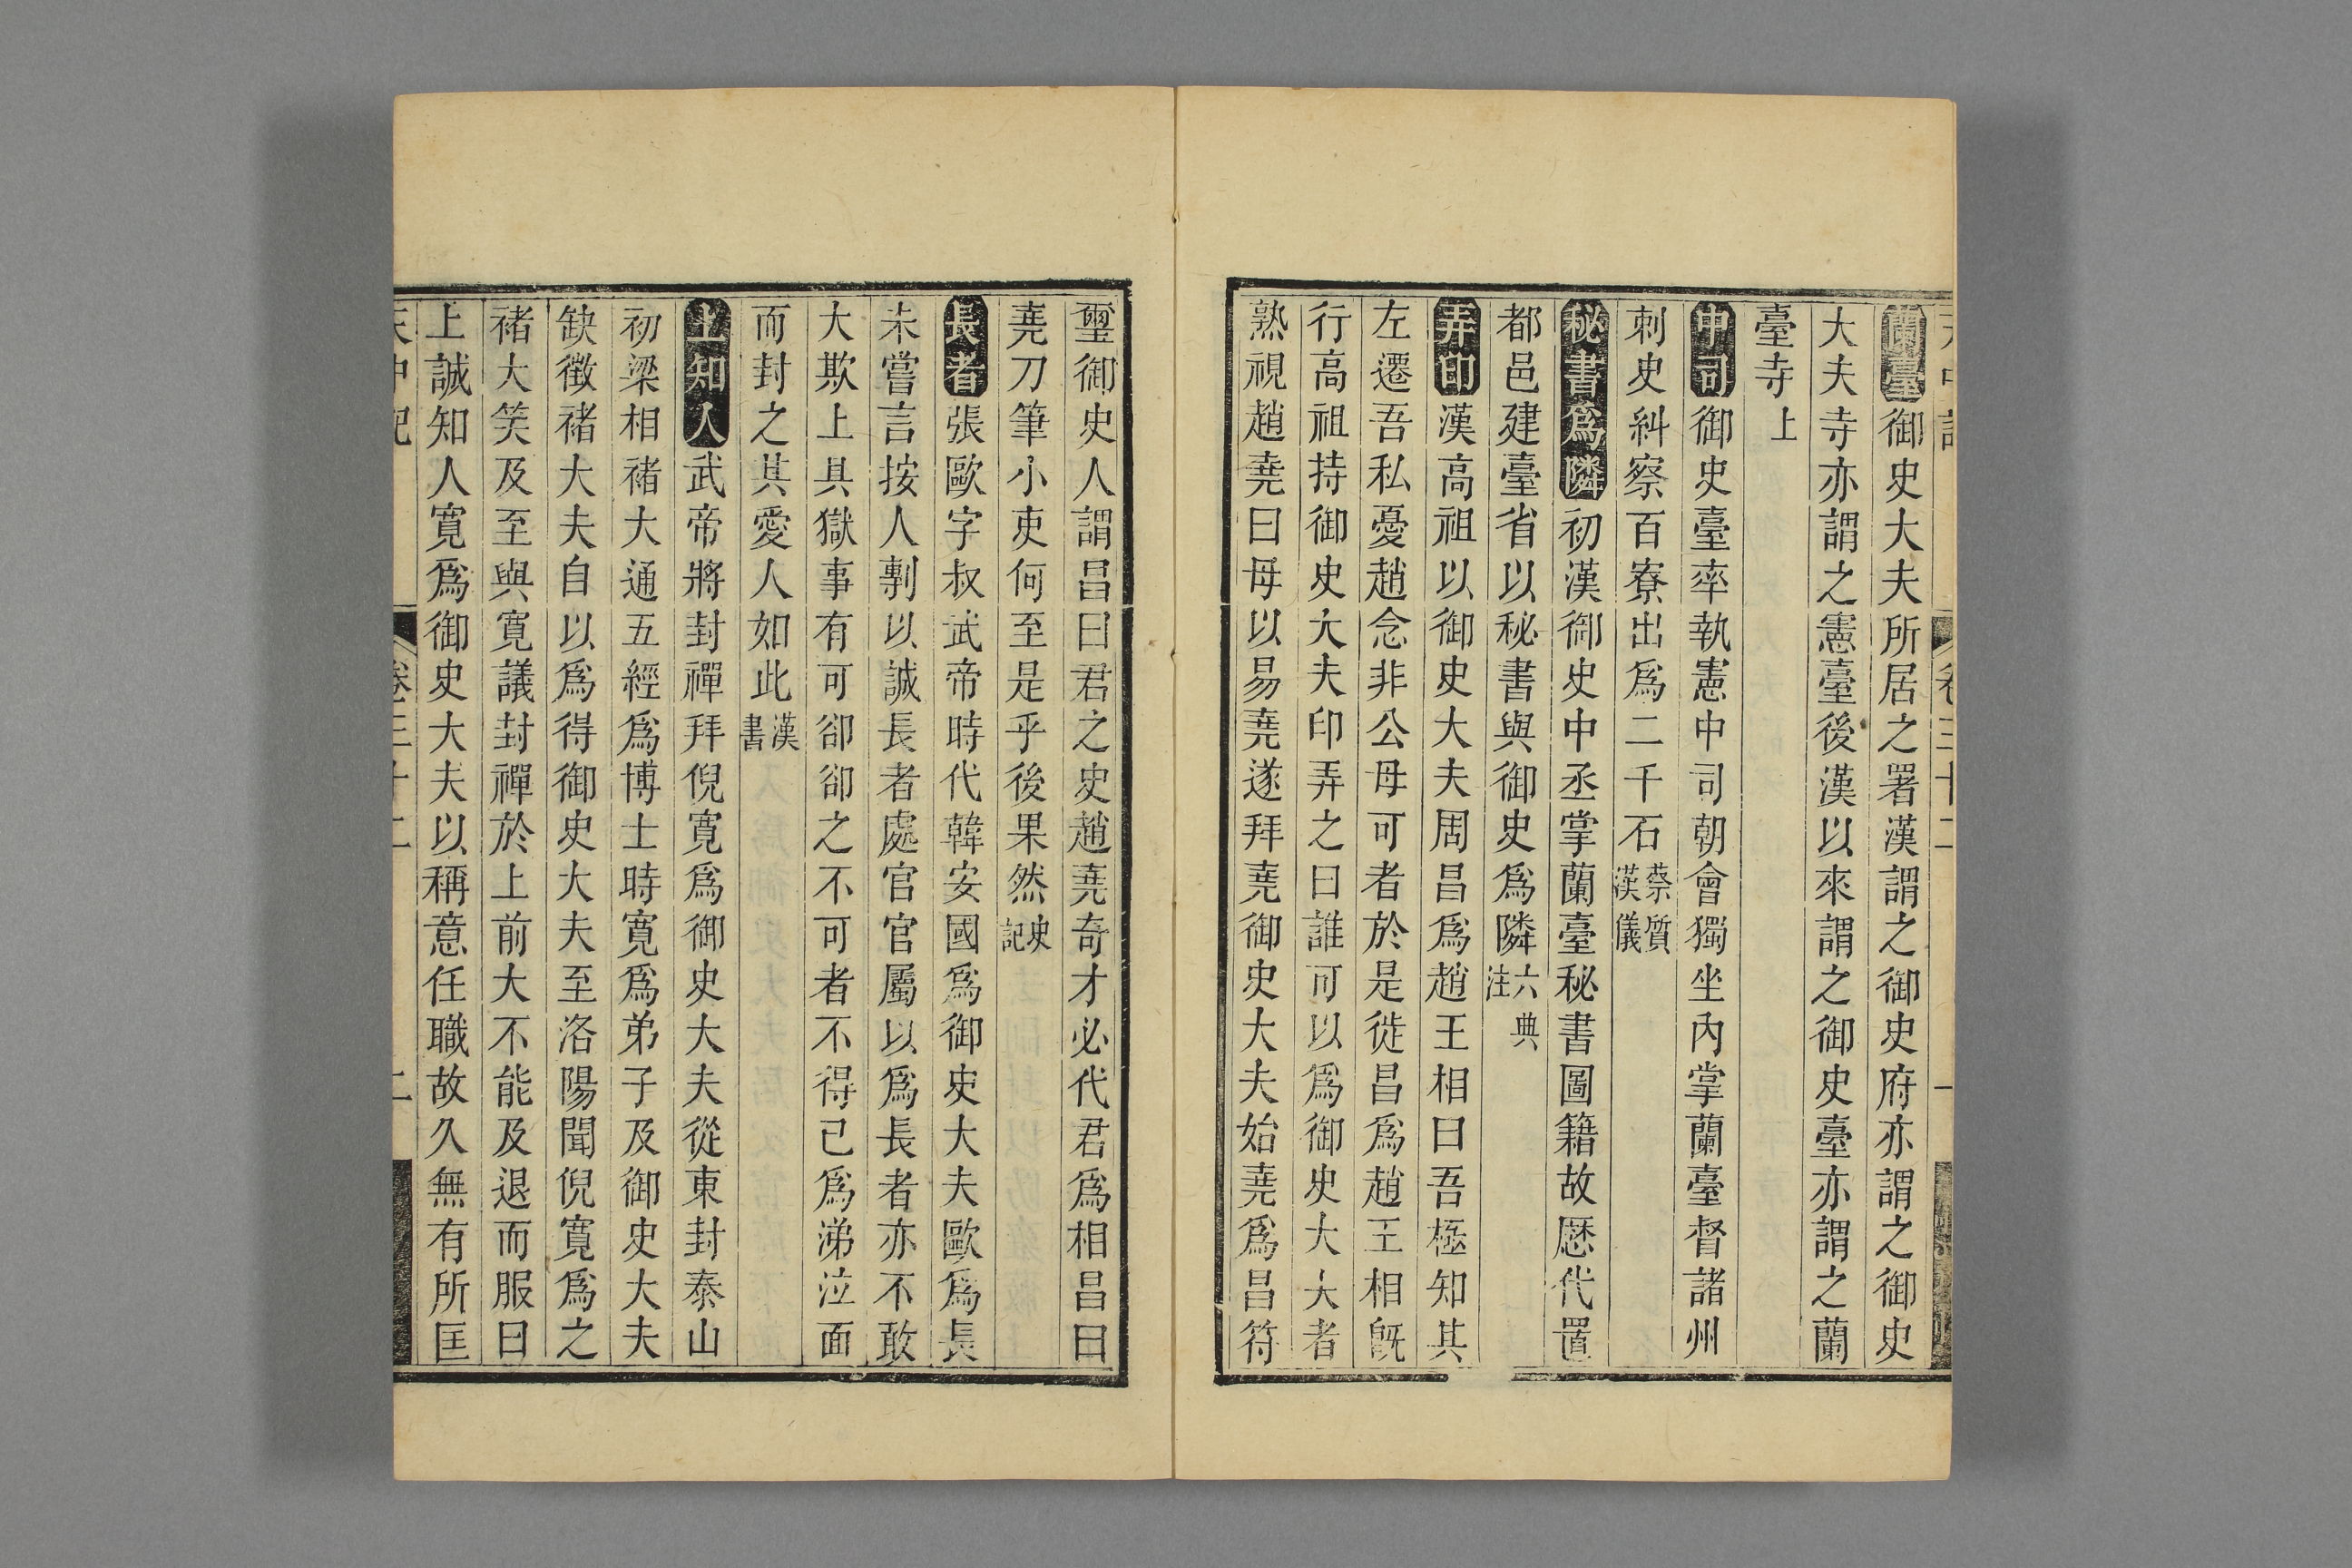 蘭臺御史大夫所居之署漢謂之御史府亦謂之御史
大夫寺亦謂之憲臺後漢以來謂之御史臺亦謂之蘭
臺寺上
中司御史臺率執憲中司朝會獨坐內掌蘭臺督諸州
刺史糾察百寮出爲二千石蔡質漢儀
秘書爲隣初漢御史中丞掌蘭臺秘書圖籍故歷代置
都邑建臺省以秘書與御史爲隣六典注
弄印漢高祖以御史大夫周昌爲趙王相曰吾極知其
左遷吾私憂趙念非公毋可者於是徙昌爲趙王相旣
行高祖持御史大夫印弄之曰誰可以爲御史大夫者
熟視趙堯曰毋以易堯遂拜堯御史大夫始堯爲昌符
璽御史人謂昌曰君之史趙堯奇才必代君爲相昌曰
堯刀筆小吏何至是乎後果然史記
長者張歐字叔武帝時代韓安國爲御史大夫歐爲長
未嘗言按人剸以誠長者處官官屬以爲長者亦不敢
大欺上具獄事有可卻卻之不可者不得已爲涕泣面
而封之其愛人如此漢書
上知人武帝將封禪拜倪寬爲御史大夫從東封泰山
初梁相褚大通五經爲博士時寬爲弟子及御史大夫
缺徵褚大夫自以爲得御史大夫至洛陽聞倪寬爲之
褚大笑及至與寬議封禪於上前大不能及退而服曰
上誠知人寬爲御史大夫以稱意任職故久無有所匡